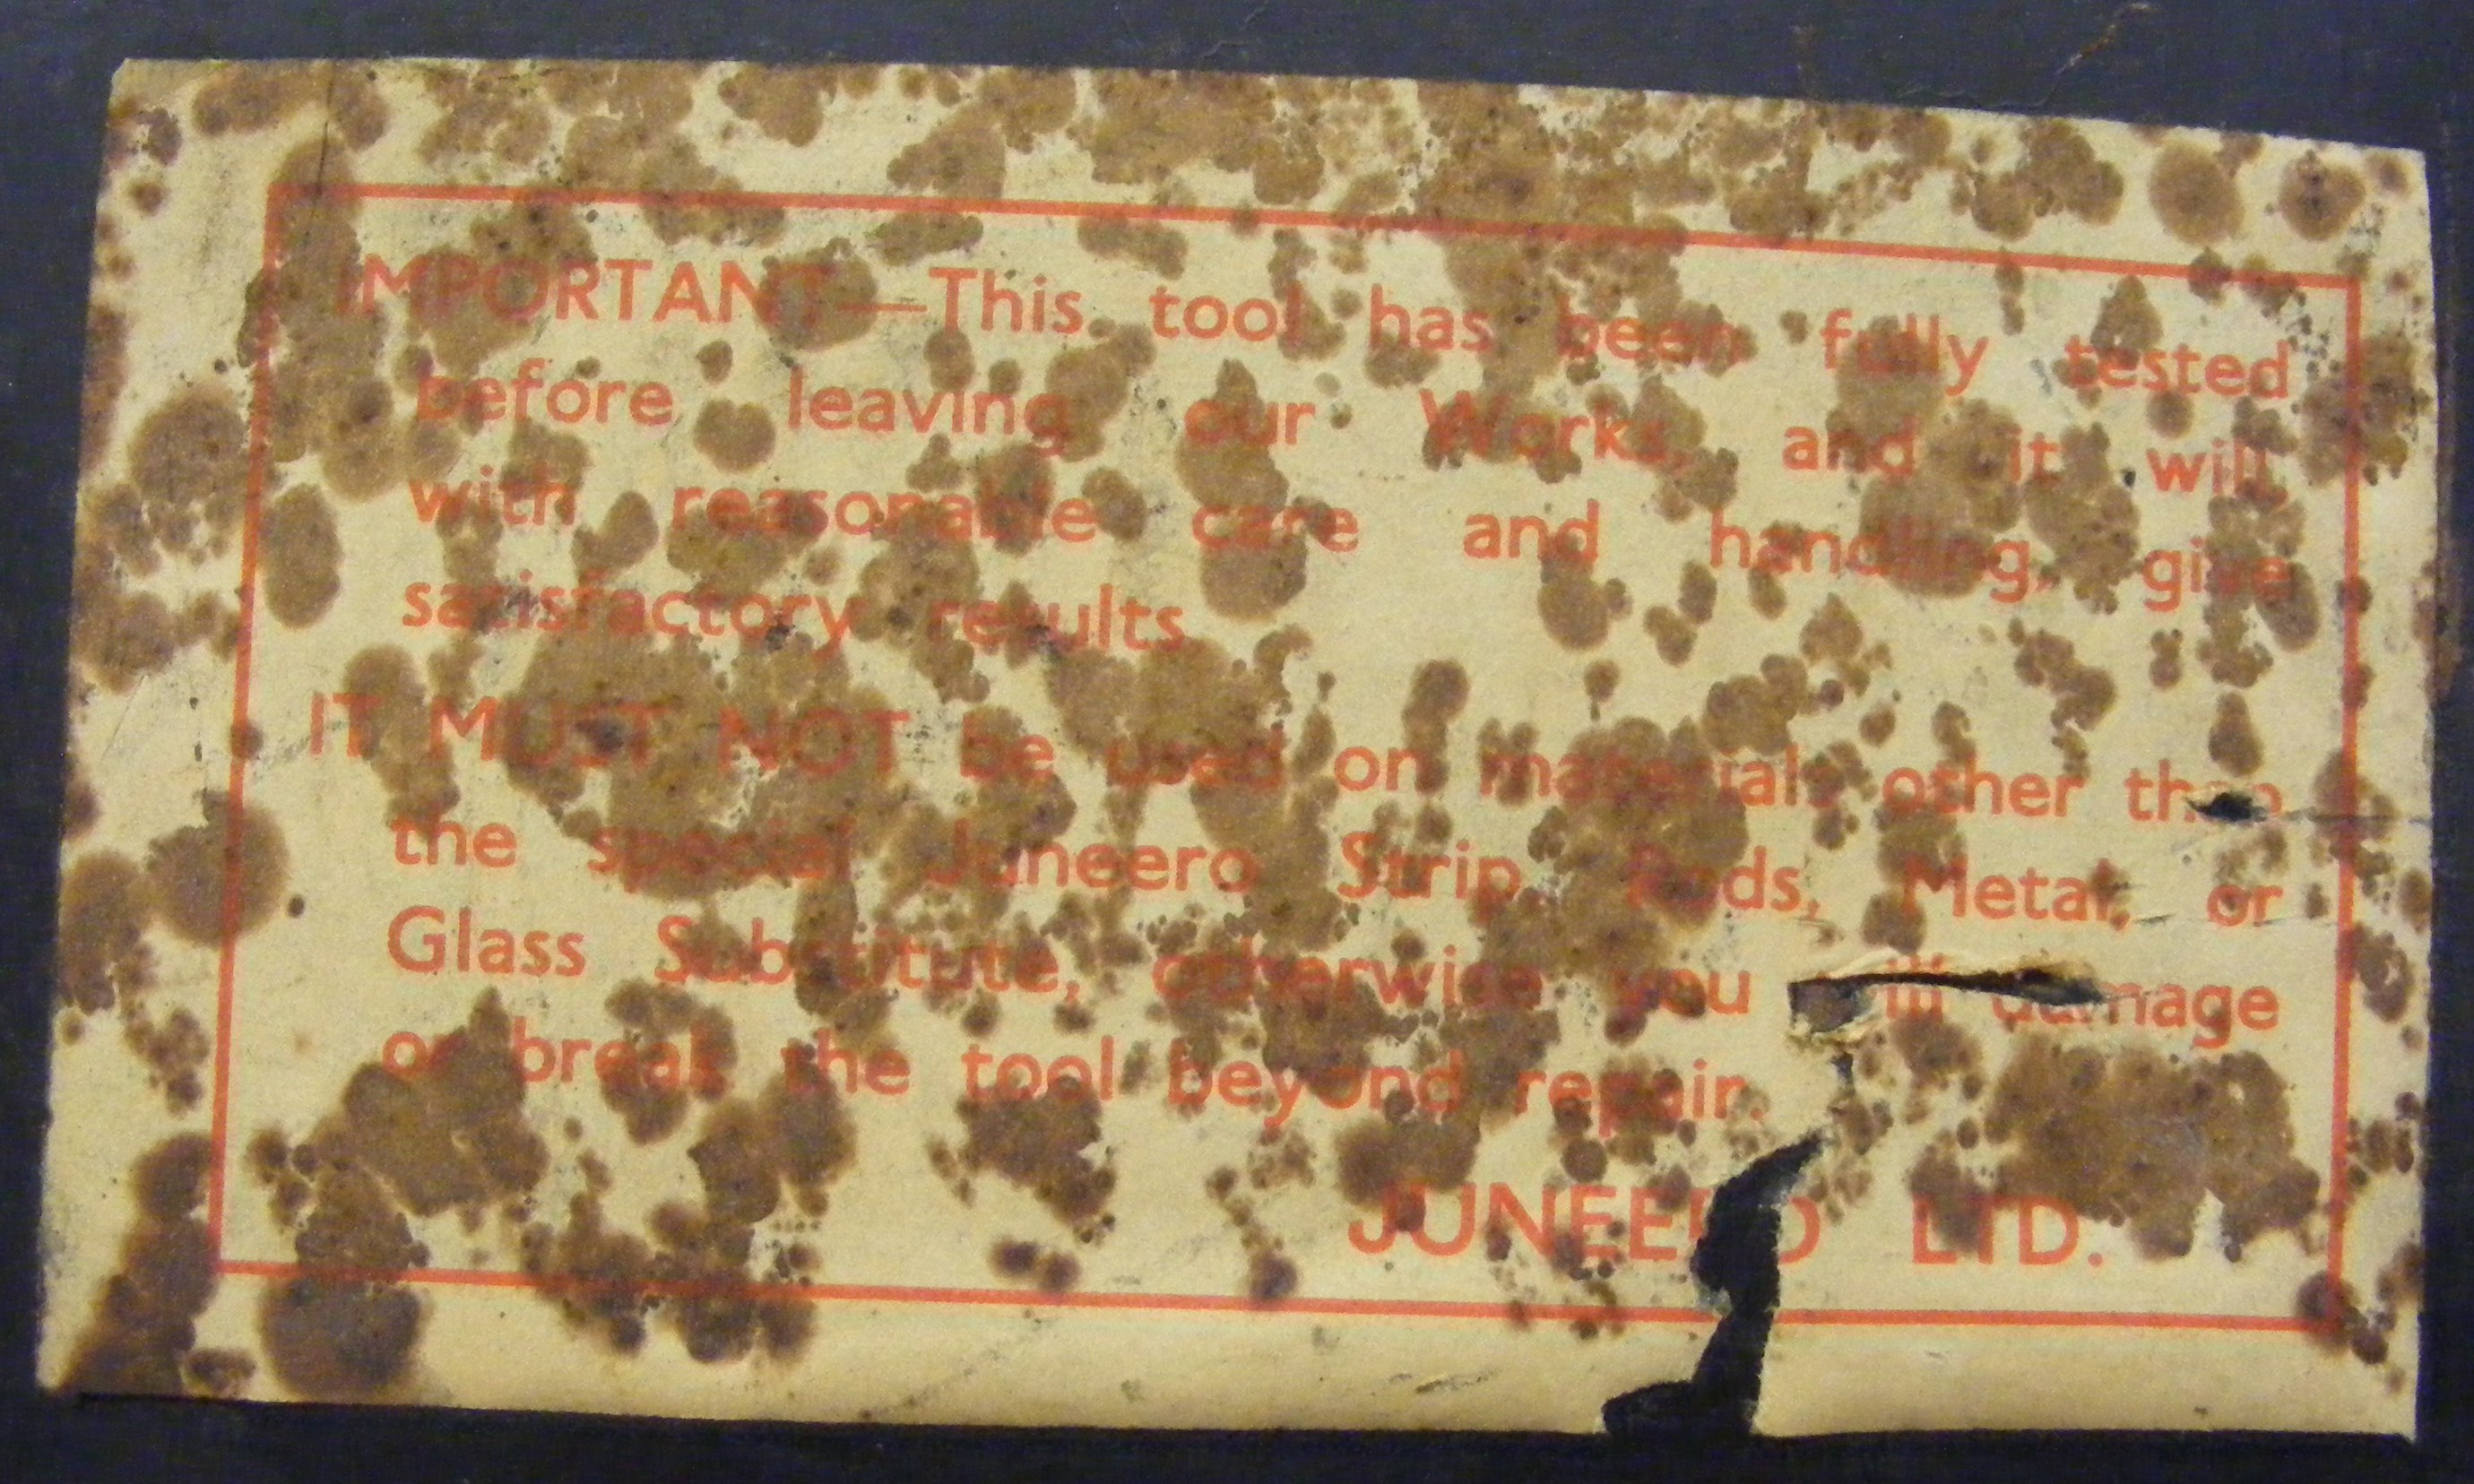 IMPORTANT—This tool has been fully tested
before leaving our Works, and it will,
with reasonable care and handling, give
satisfactory results
IT MUST NOT be used on materials other than
the special Juneero Strip, Rods, Metal, or
Glass Substitute, otherwise you will damage
or break the tool beyond repair.
JUNEERO LTD.